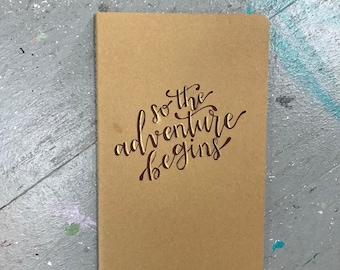 so the
adventure
begins